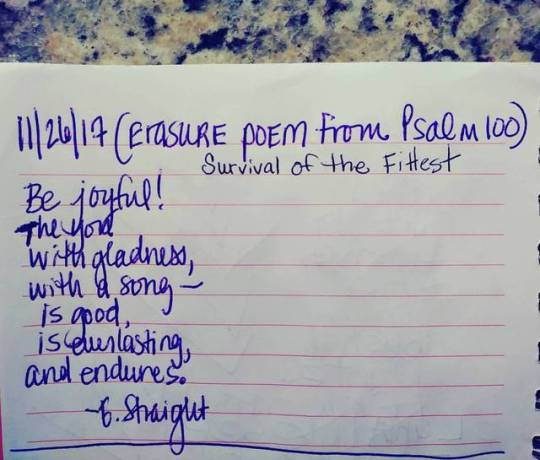 11/26/17 (ERASURE POEM from Psalm 100)
Survival of the Fittest
Be joyful!
The Lord
with gladness,
with a song —
is good,
is everlasting,
and endures.
Straight